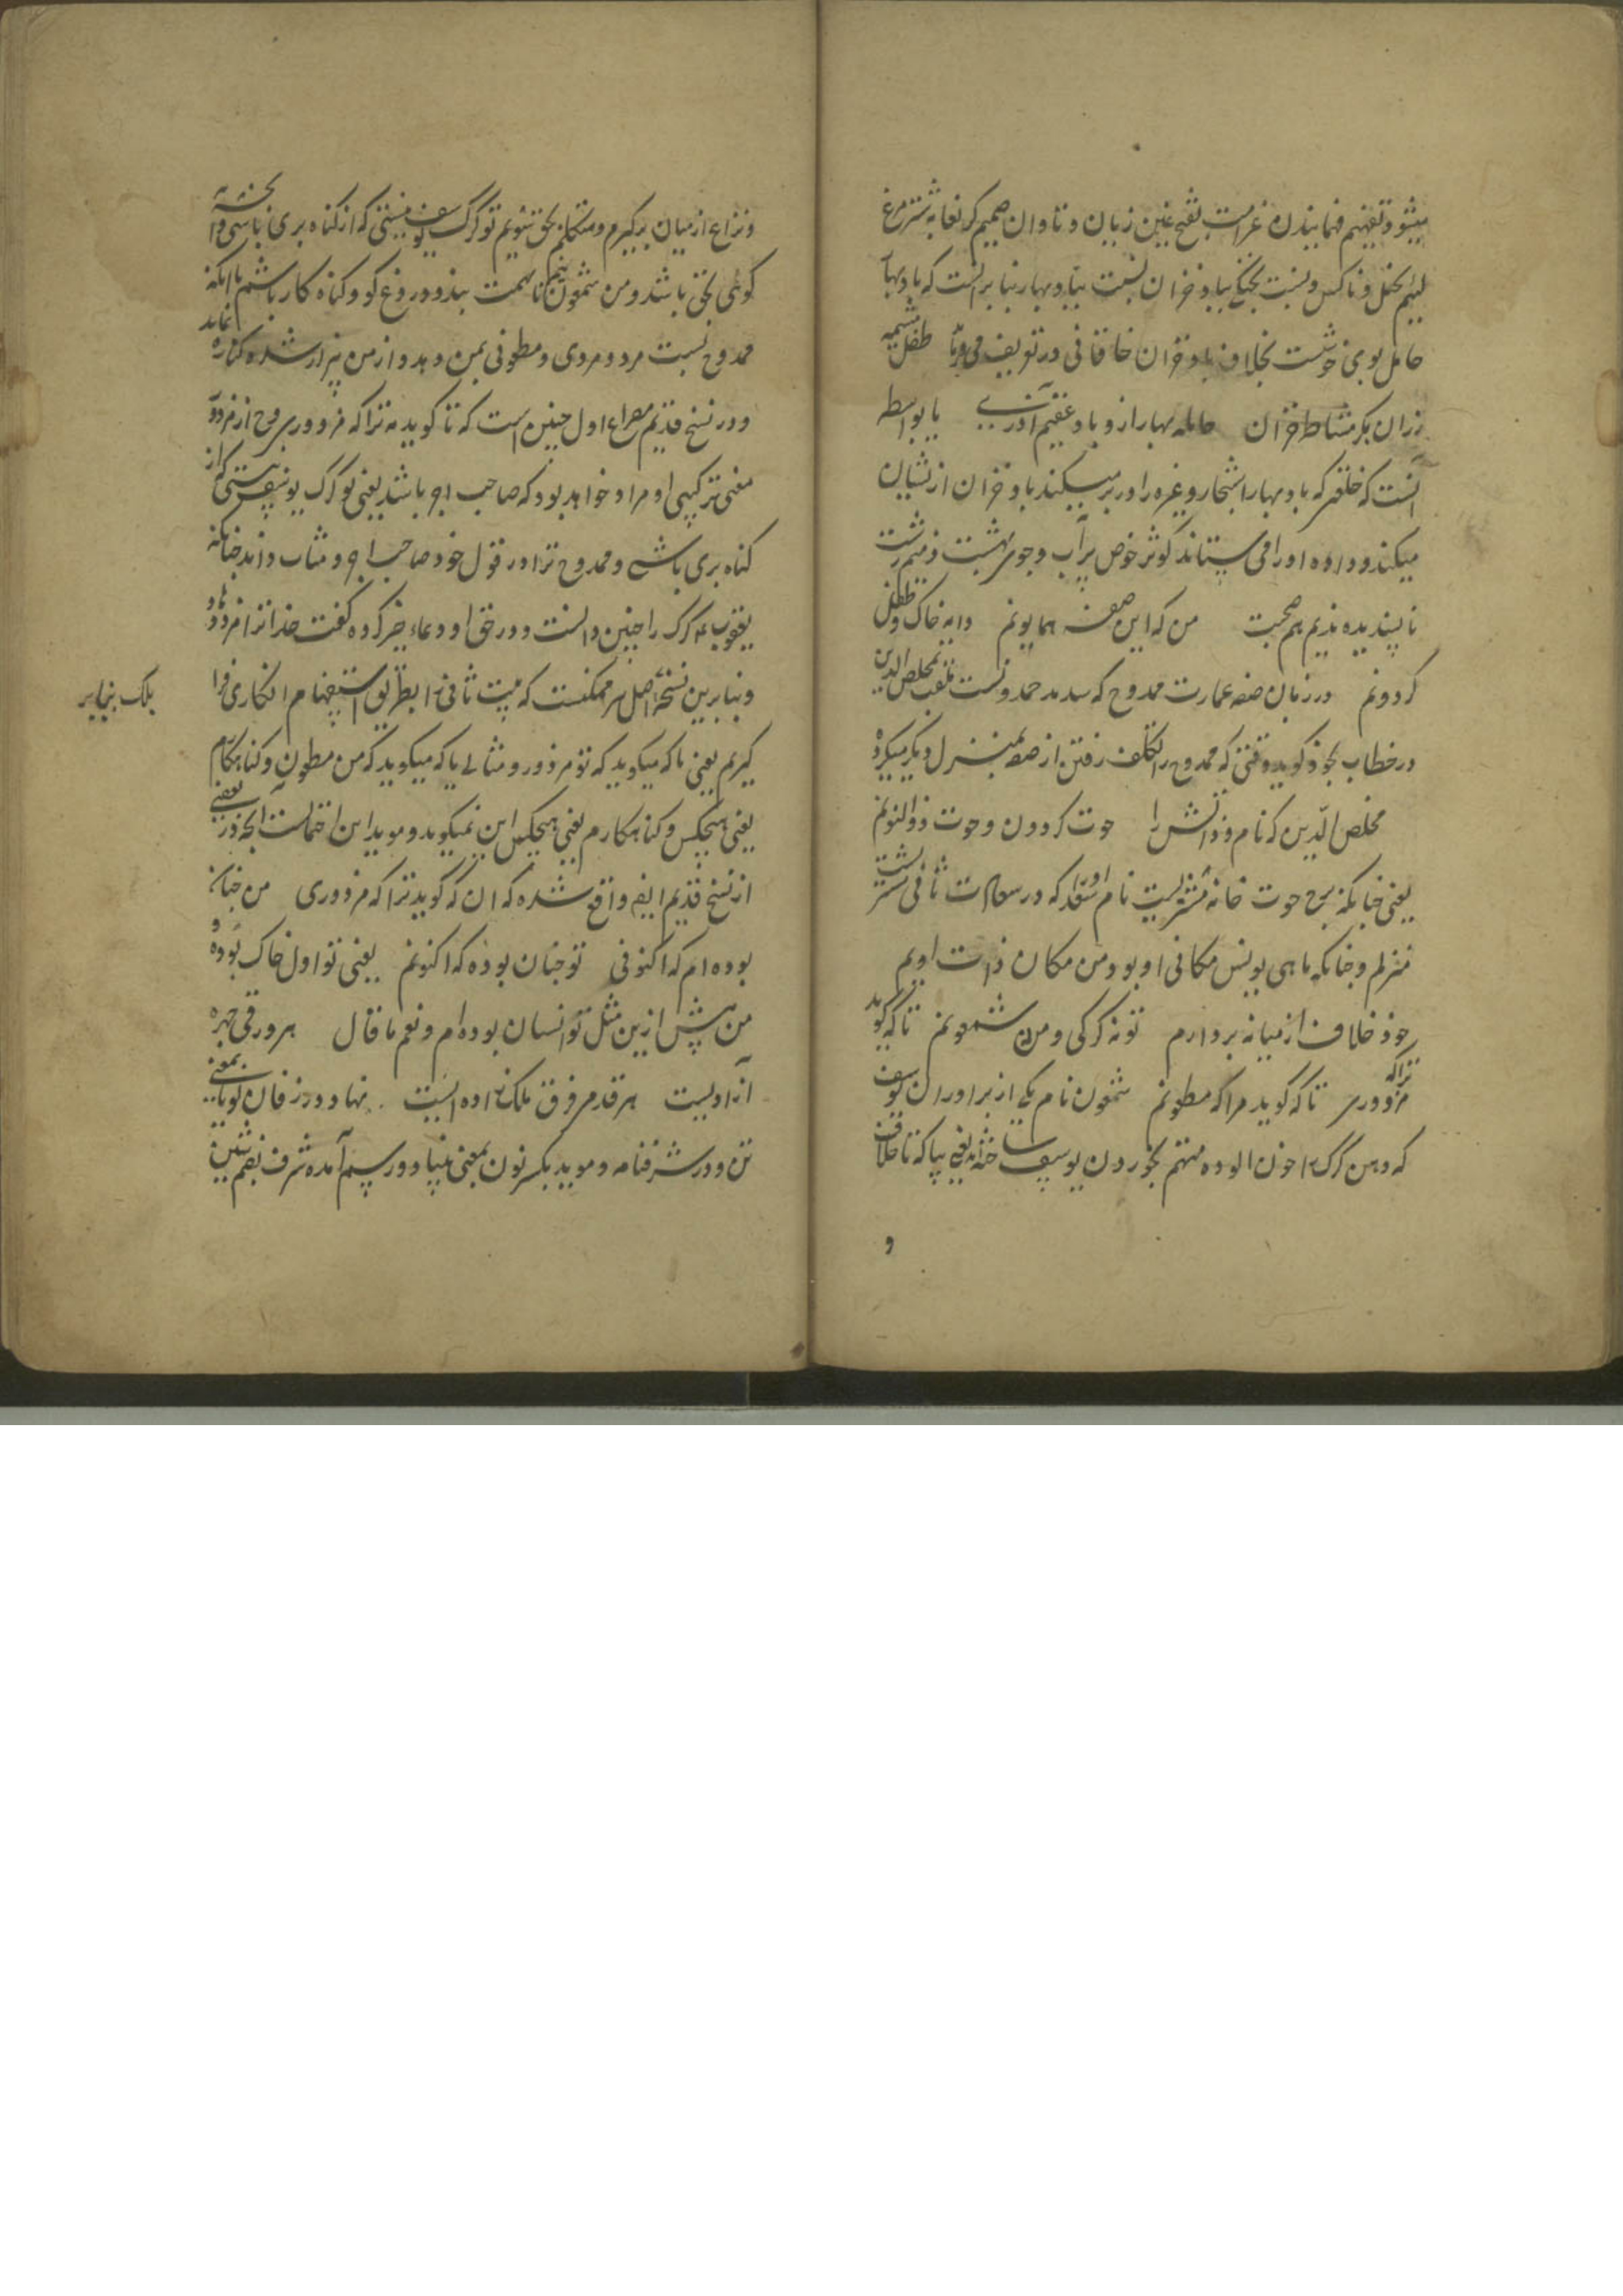 میشود تفهیم فهمانیدن غرامت بفتح غین زیان و تاوان صمیم که لغایه شتر مرغ
لئیم بخیل و ناکس و نسبت بخل بباد خزان نسبت بباد بهار بنا برانست که باد بهار
حامل بوی خوشست بخلاف باد خزان خاقانی در تعریف می طفل مشیمه
رزان بکر مشاطه خزان حامله بهار ازو باد عقیم آذری یا بواسطه
آنست که خلقی که باد بهار اشجار و غیره را در بر میکند باد خزان ازیشان
میکند و داده او را می ستاند کوثر حوض پر آب و جوی بهشت ذمیم زشت
ناپسندیده ندیم هم صحبت من که این صفه همایونم دایه خاک و طفل
کردونم در زمان صفه عمارت ممدوح که سدید حمد و نست ملقب بمخلص الدین
در خطاب بخود کوید وقتی که ممدوح را تکلف رفتن از صفه بمنزل دیگر میکرد
مخلص الدین که نام و ذاتش را حوت کردون و حوت ذوالنونم
یعنی چنانکه برج حوت خانه مشتریست نام او را که در سعادت ثانی مشتریست
منزلم و چنانکه ماهی یونس مکانی او بود من مکان ذات اویم
خود خلاف از میانه بردارم تو نه کرکی و من نه شمعونم تا که گوید
تراکه مزدوری تا که گوید مرا که مطعونم شمعون نام یکی از برادران یوسف
که دهن کرک را خون الوده متهم بخوردن یوسف ساخته اند یعنی بیا که تا خلاف
و
و نزاع از میان برگیرم و متکلم بحق شویم تو کرک یوسف نیستی که از گناه بری باشی و آنچه
گوئی بحق باشد و من شمعون نیم تا تهمت بند و دروغ گو و گناه کار باشم با آنکه
ممدوح نسبت مرد و مردی و مطعونی بمن دهد و از من بیزار شده کناره نماید
و در نسخ قدیم مصراع اول چنین است که تا گوید نه تراکه مزدوری مزدور
معنی ترکیبی او مراد خواهد بود که صاحب اجر باشد یعنی تو کرک یوسف نیستی که از
گناه بری باشی و ممدوح ترا در قول خود صاحب اجر و مثاب داند چنانکه
یعقوب نه کرک را چنین دانست و در حق او دعاء خیر کرده گفت خدا ترا مزد دهاد
و بنابرین نسخه اصل نیز ممکنست که بیت ثانی را بطریق استفهام انکاری فرا
گیریم یعنی تا که میگوید که تو مزدور و مثالی یا که میگوید که من مطعون و گناهکارم
یعنی هیچکس و گناهکارم یعنی هیچکس این نمیگوید و موید این احتمالست آنچه در بعضی
از نسخ قدیم ایضا واقع شده که ان که گوید ترا که مزدوری من چنان
بوده ام که اکنونی تو چنان بوده که اکنونم یعنی تو اول خاک بوده و
من پیش ازین مثل تو انسان بوده ام و نعم ما قال هر ورقی چهره
آزاد یست هر قدم فرق ملک زاده ایست نهاد در زفان گویا بمعنی
تن و در شرفنامه و موید بکسر نون بمعنی بنیاد و رسم آمده شرف بضم شین
بلک بنابر